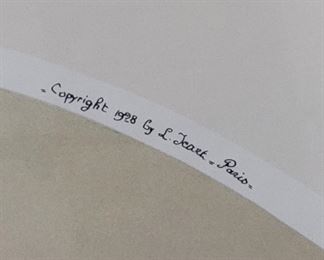 - Copyright 1928 by L. Icart - Paris -